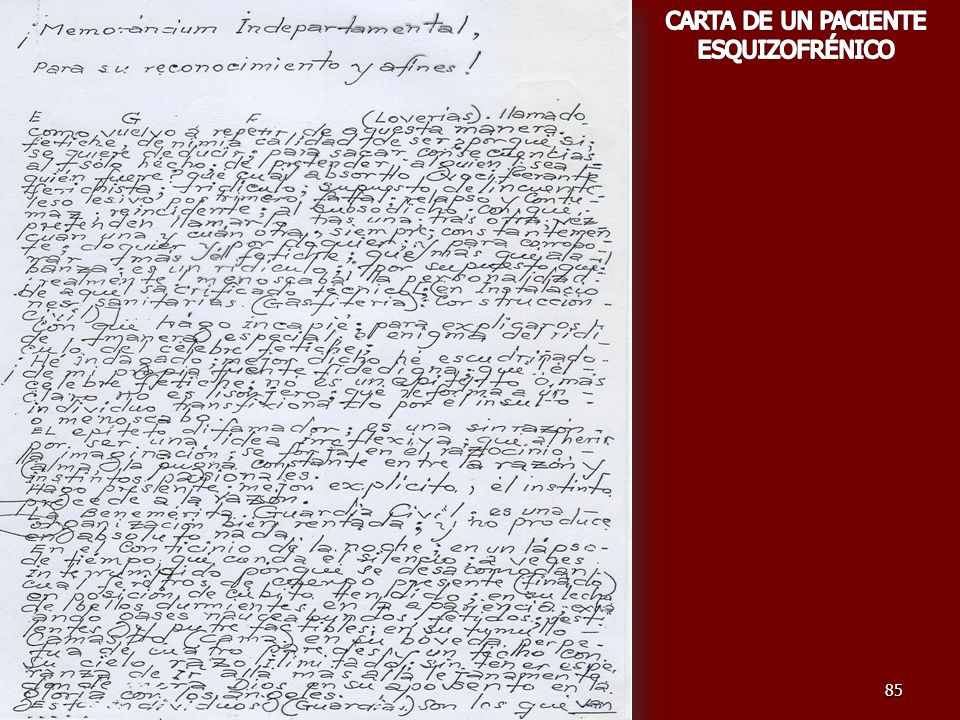 ¡Memorándium Indepartamental,
Para su reconocimiento y afines!
E G F (Loverias). llamado
como vuelvo á repetir de aquesta manera.
fetiche, de nimia calidad de ser, porque si,
se quiere deducir; para sacar consecuencias
al sólo hecho de pretender, a quien sea -
quién fuere? que cual absorto
fetichista, ridículo, supuesto, delincuente
leso lesivo, postrimero, relapso y contu-
maz, reindidente, al susodicho, con que,
pretenden llamar, a tras una tras otra vez
cuán una y cuán otra, siempre, constantemen
te; cloquier y por cloquien, y para corropo
rar más el fetiche; que más que ala -
banza, es un ridículo, ¡Por supuesto que
¡realmente menoscaba la personalidad
de aquel sacrificado técnico en Instalacio
nes sanitarias (Gasfitería), construccion -
Civil)
Con que hago incapié, para explicaros,
de manera especial, el enigma del ridí
culo, de célebre fetiche.
¡He indagado, mejor dicho he escudriñado -
de mi propia fuente fidedigna, que el -
célebre fetiche, no es un epíteto o más
claro no es lisonjero, que deforma a un -
individuo transfixionado por el insulto -
o menoscabo.
EL epíteto difamador, es una sinrazón -
por ser una idea irreflexiva, que al herir
la imaginación, se forja en el raciocinio -
(alma) la pugna constante entre la razón y
instintos pasionales.
Hago presente, mejor explícito, el instinto
precede a la razón.
La Benemérita Guardia Civil, es una -
organización bien rentada, y no produce
en absoluto nada.
En el Conticinio de la noche, en un lapso -
de tiempo, que cunda el silencio, a veces
interrumpido porque se desacomodan
cua féretros de cuerpo presente (finado)
en posición decúbito tendido, en su lecho
de bellos durmientes, en la apariencia, exha
ando gases nauceabundos, fétidos, pesti
lentes y putrefactibles, en su tumullo -
camastro (cama) en su bóveda perpe -
tua de cuatro paredes y un techo con
su cielo razo ilimitado, sin tener espe
ranza de ir alla mas alla lejanamente
donde Dios en su aposento en la
gloria con los ángeles.
Estos individuos (Guardia) son los que van
CARTA DE UN PACIENTE
ESQUIZOFRÉNICO
85